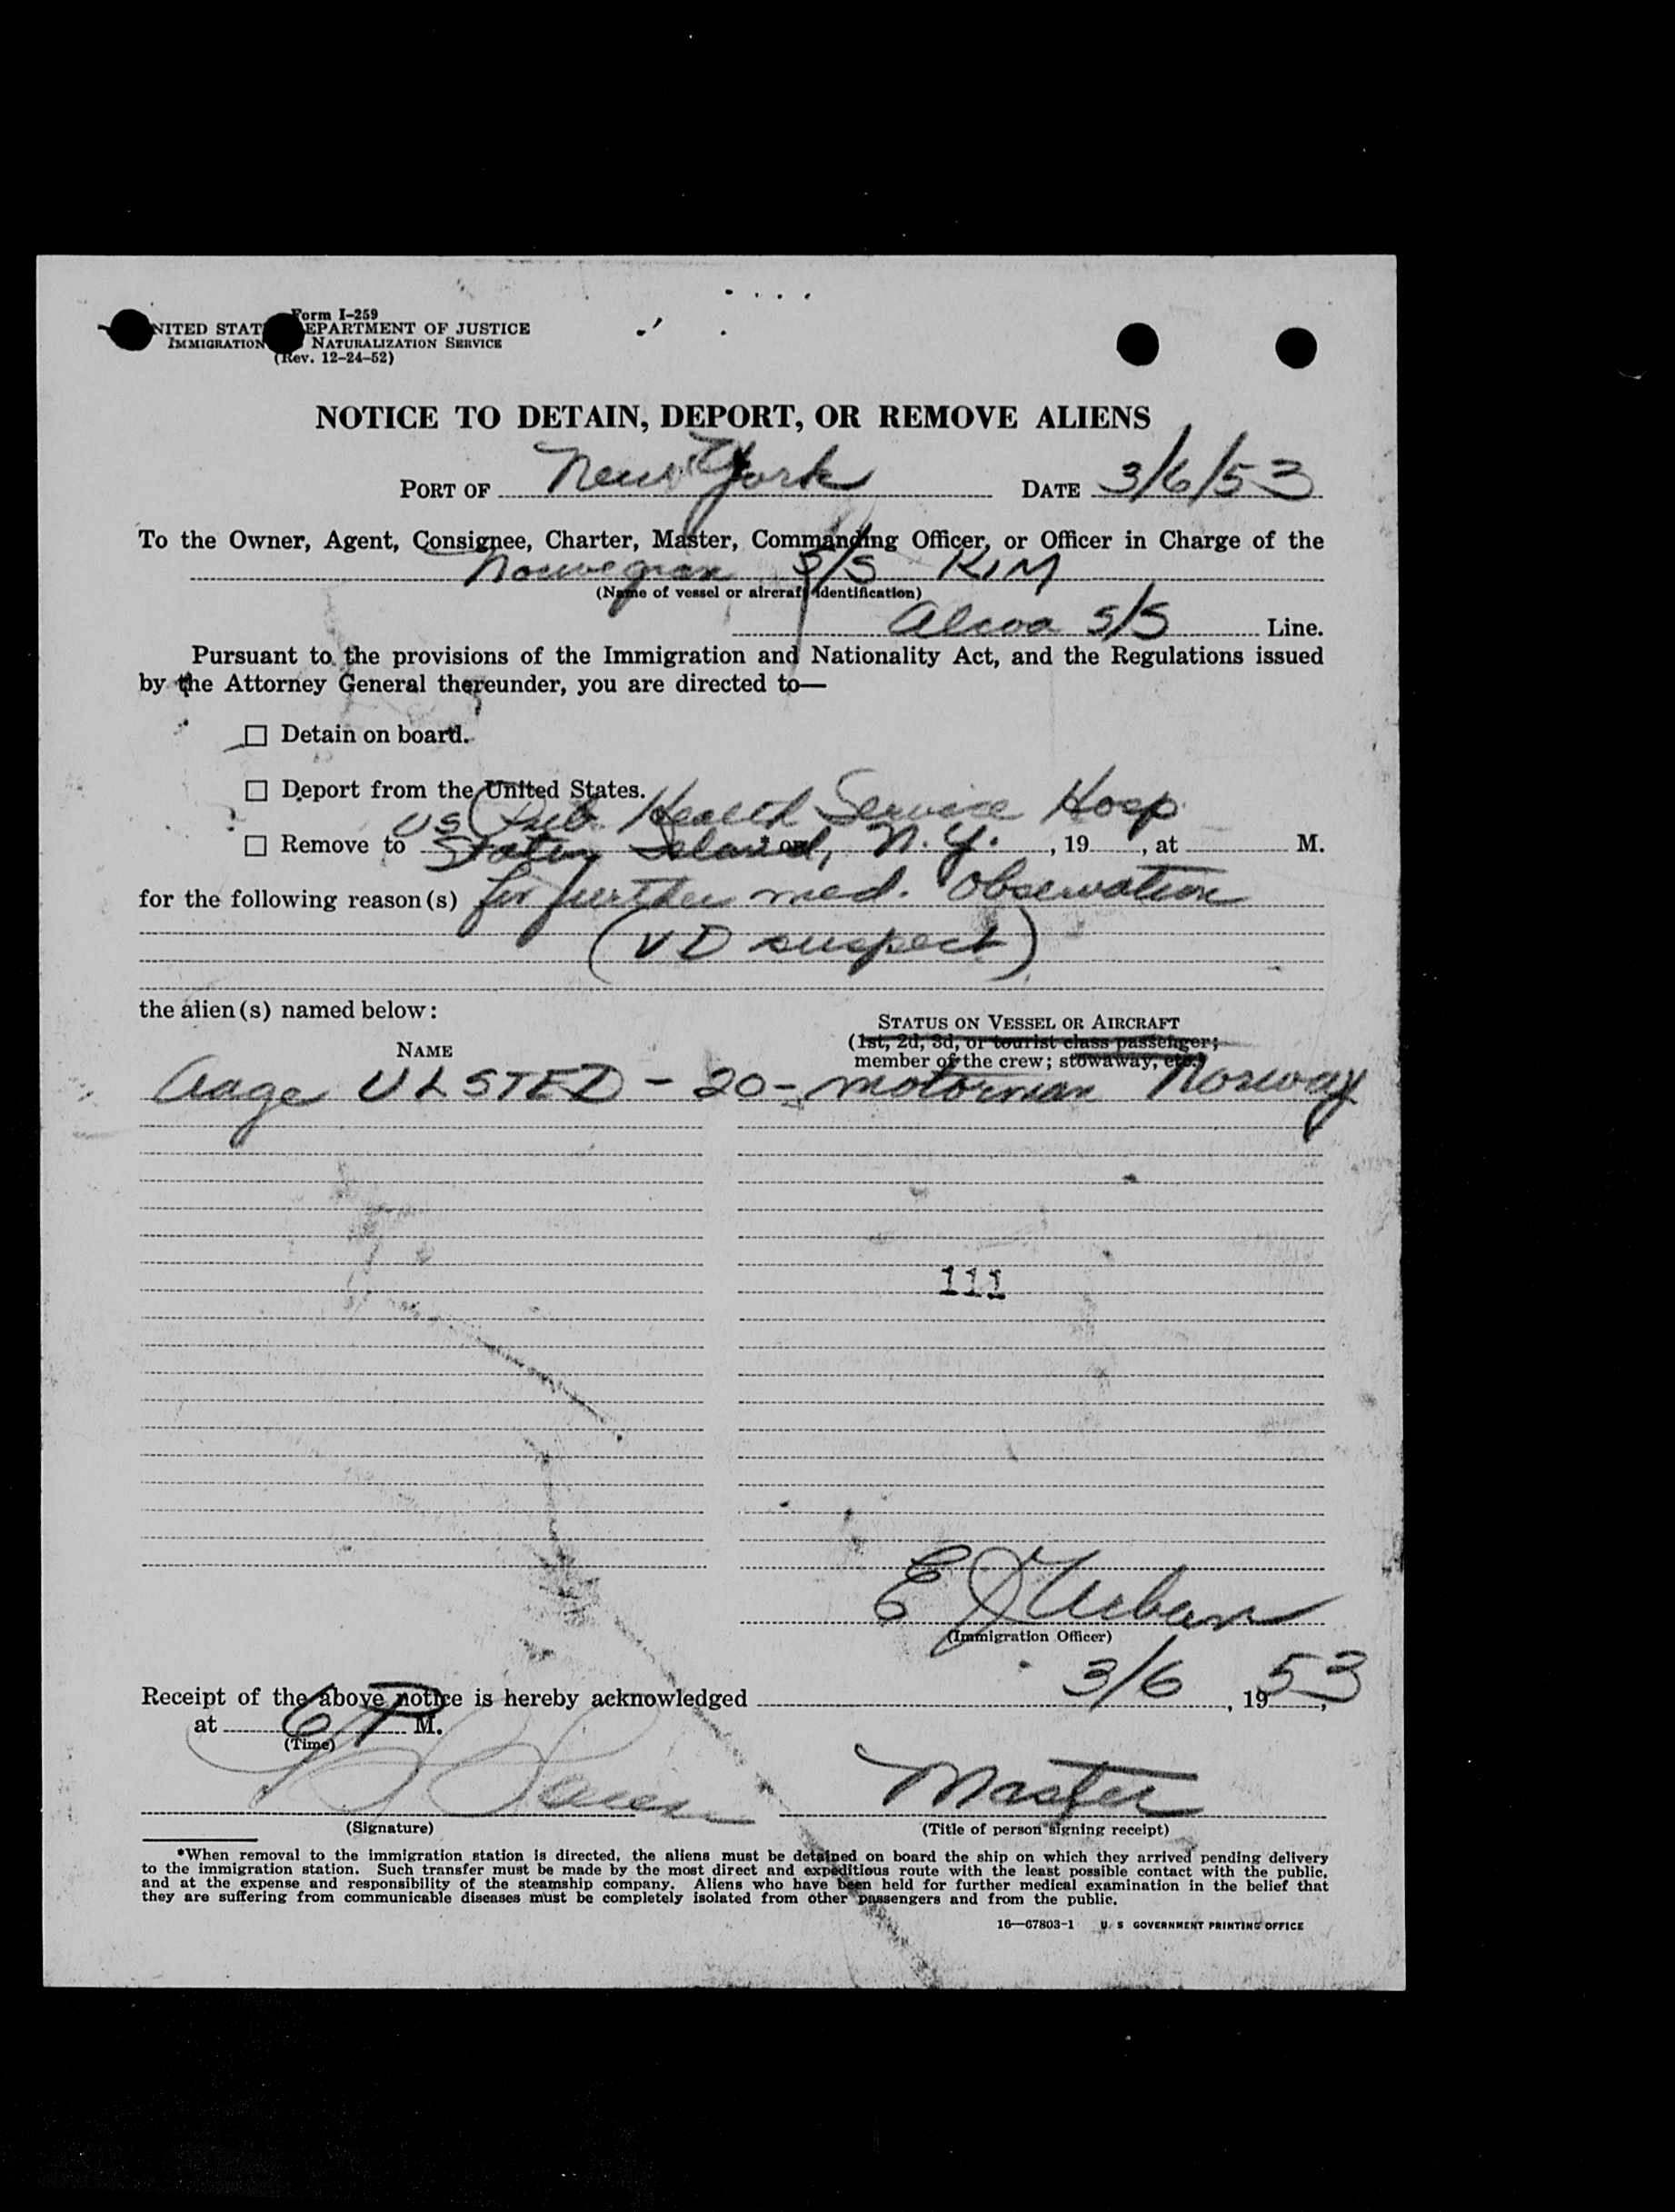 Form I-259
NITED STAT EPARTMENT OF JUSTICE
IMMIGRATION NATURALIZATION SERVICE
(Rev. 12-24-52)
NOTICE TO DETAIN, DEPORT, OR REMOVE ALIENS
PORT OF New York DATE 3/6/53
To the Owner, Agent, Consignee, Charter, Master, Commanding Officer, or Officer in Charge of the
Norwegian S/S KIM
(Name of vessel or aircraft identification)
Alcoa S/S Line.
Pursuant to the provisions of the Immigration and Nationality Act, and the Regulations issued
by the Attorney General thereunder, you are directed to—
☐ Detain on board.
☐ Deport from the United States.
US Pub. Health Service Hosp
☐ Remove to Staten Island, *on N.Y. , 19 , at M.
for the following reason(s) for further med. observation
(VD suspect)
the alien(s) named below:
STATUS ON VESSEL OR AIRCRAFT
NAME (1st, 2d, 3d, or tourist class passenger;
member of the crew; stowaway, etc.)
Aage ULSTED - 20 - motorman Norway
111
E J Urban
(Immigration Officer)
Receipt of the above notice is hereby acknowledged 3/6, 1953,
at 6 P M.
(Time)
Master
(Signature) (Title of person signing receipt)
*When removal to the immigration station is directed, the aliens must be detained on board the ship on which they arrived pending delivery
to the immigration station. Such transfer must be made by the most direct and expeditious route with the least possible contact with the public,
and at the expense and responsibility of the steamship company. Aliens who have been held for further medical examination in the belief that
they are suffering from communicable diseases must be completely isolated from other passengers and from the public.
16—67803-1 U. S GOVERNMENT PRINTING OFFICE